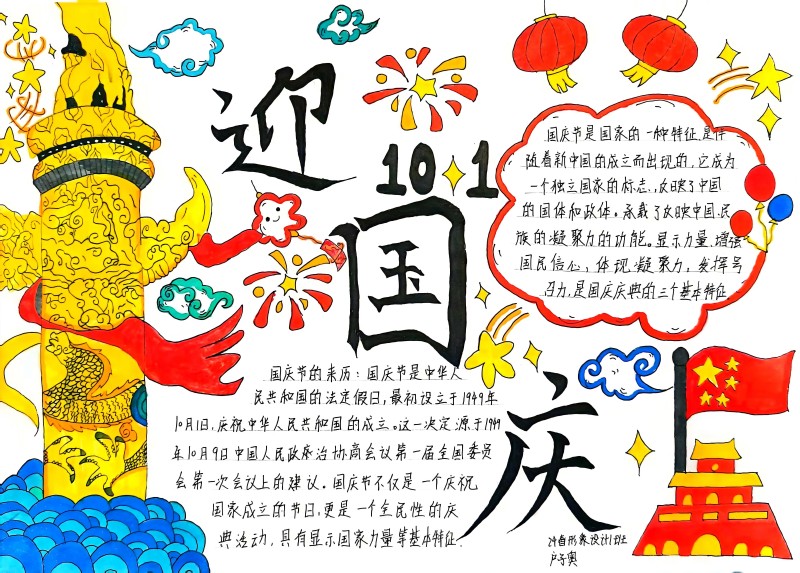 迎
国
庆
10✦1
国庆节是国家的一种特征,是伴
随着新中国的成立而出现的,它成为
一个独立国家的标志,反映了中国
的国体和政体。承载了反映中国民
族的凝聚力的功能。显示力量,增强
国民信心,体现凝聚力,发挥号
召力,是国庆庆典的三个基本特征
国庆节的来历:国庆节是中华人
民共和国的法定假日,最初设立于1949年
10月1日,庆祝中华人民共和国的成立。这一决定源于1949
年10月9日中国人民政府治协商会议第一届全国委员
会第一次会议上的建议。国庆节不仅是一个庆祝
国家成立的节日,更是一个全民性的庆
典活动,具有显示国家力量等基本特征.
形象设计1班